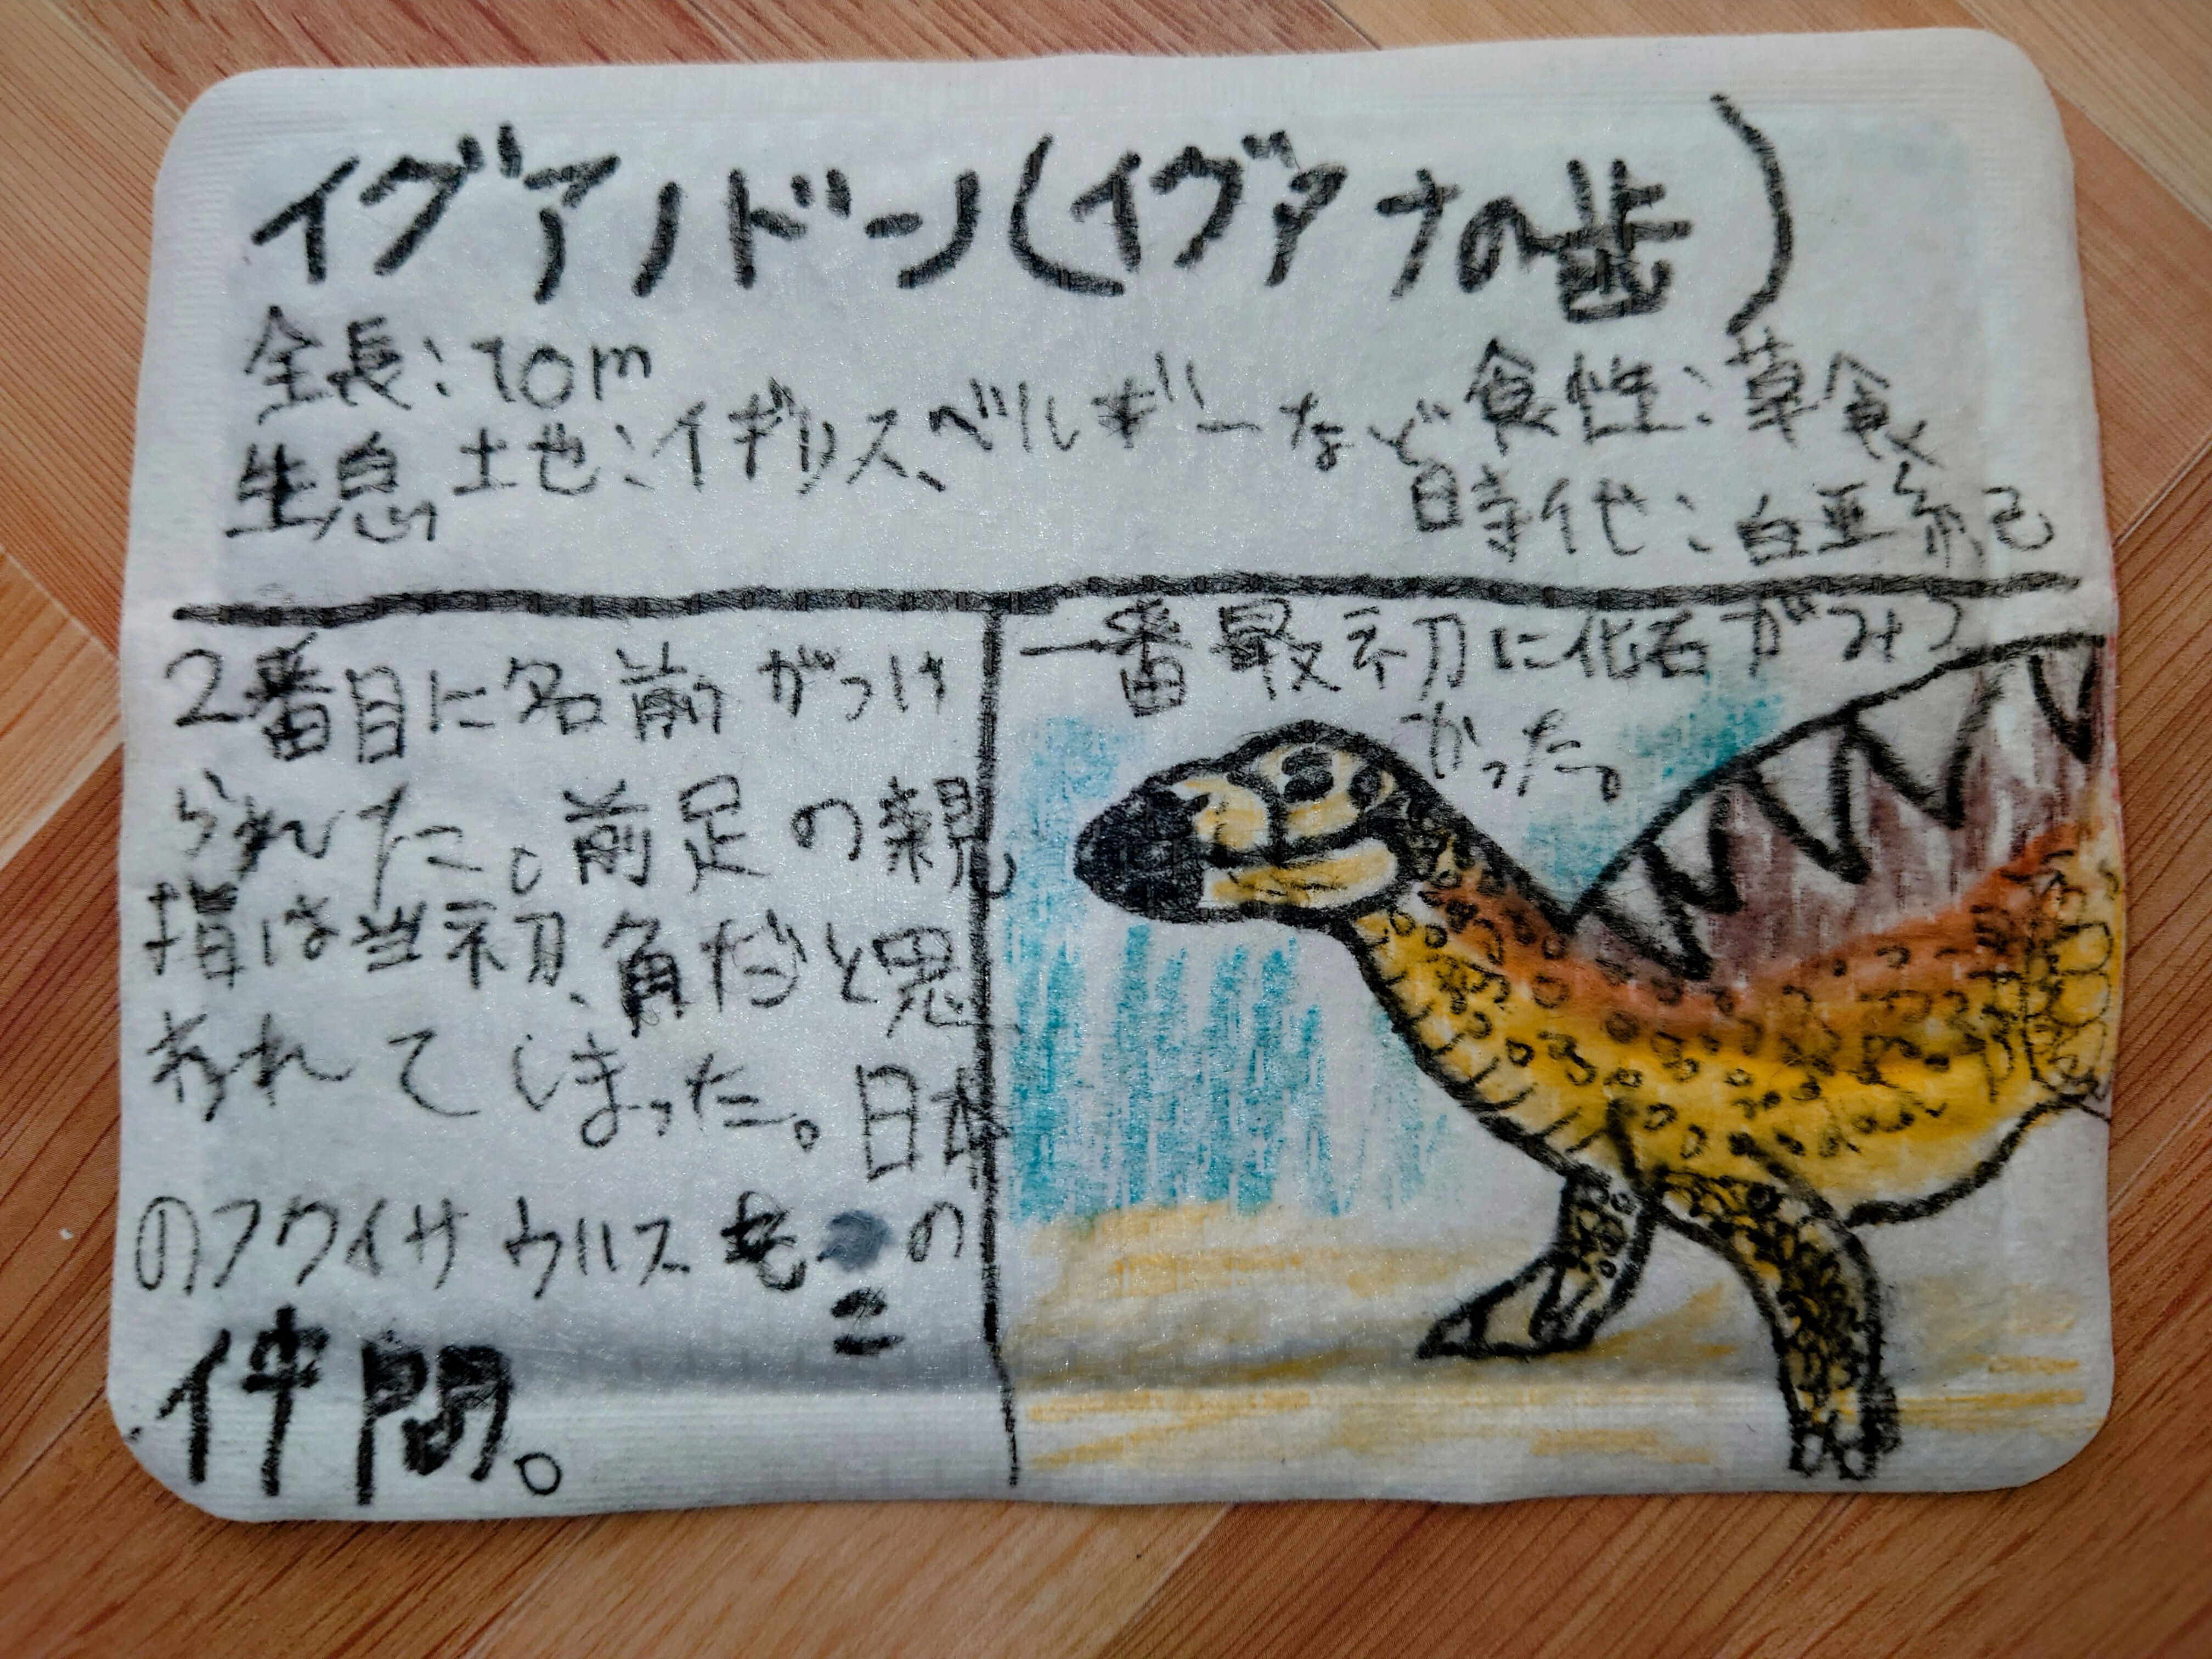 イグアノドン(イグアナの歯)
全長:10m
食性:草食
生息土地:イギリス、ベルギーなど
時代:白亜紀
2番目に名前がつけ
られた。前足の親
指は当初、角だと思
われてしまった。日本
のフクイサウルスもこの
仲間。
一番最初に化石がみつ
かった。